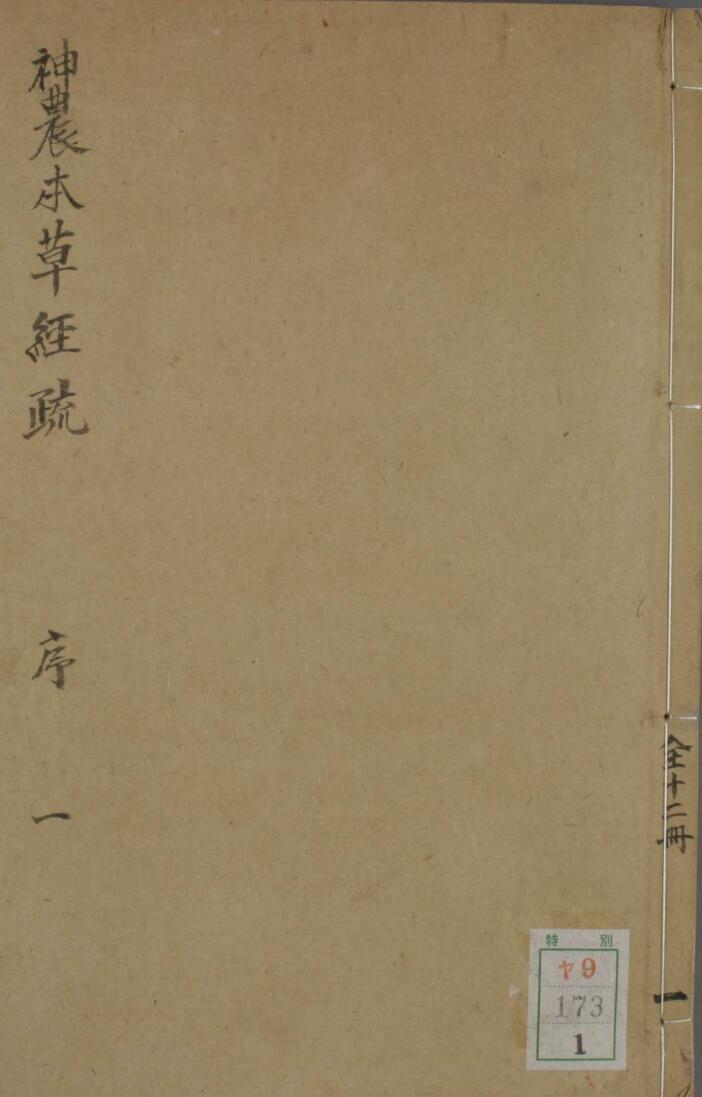 神農本草經疏 序 一
全十二冊
一
特別
ヤ9
173
1